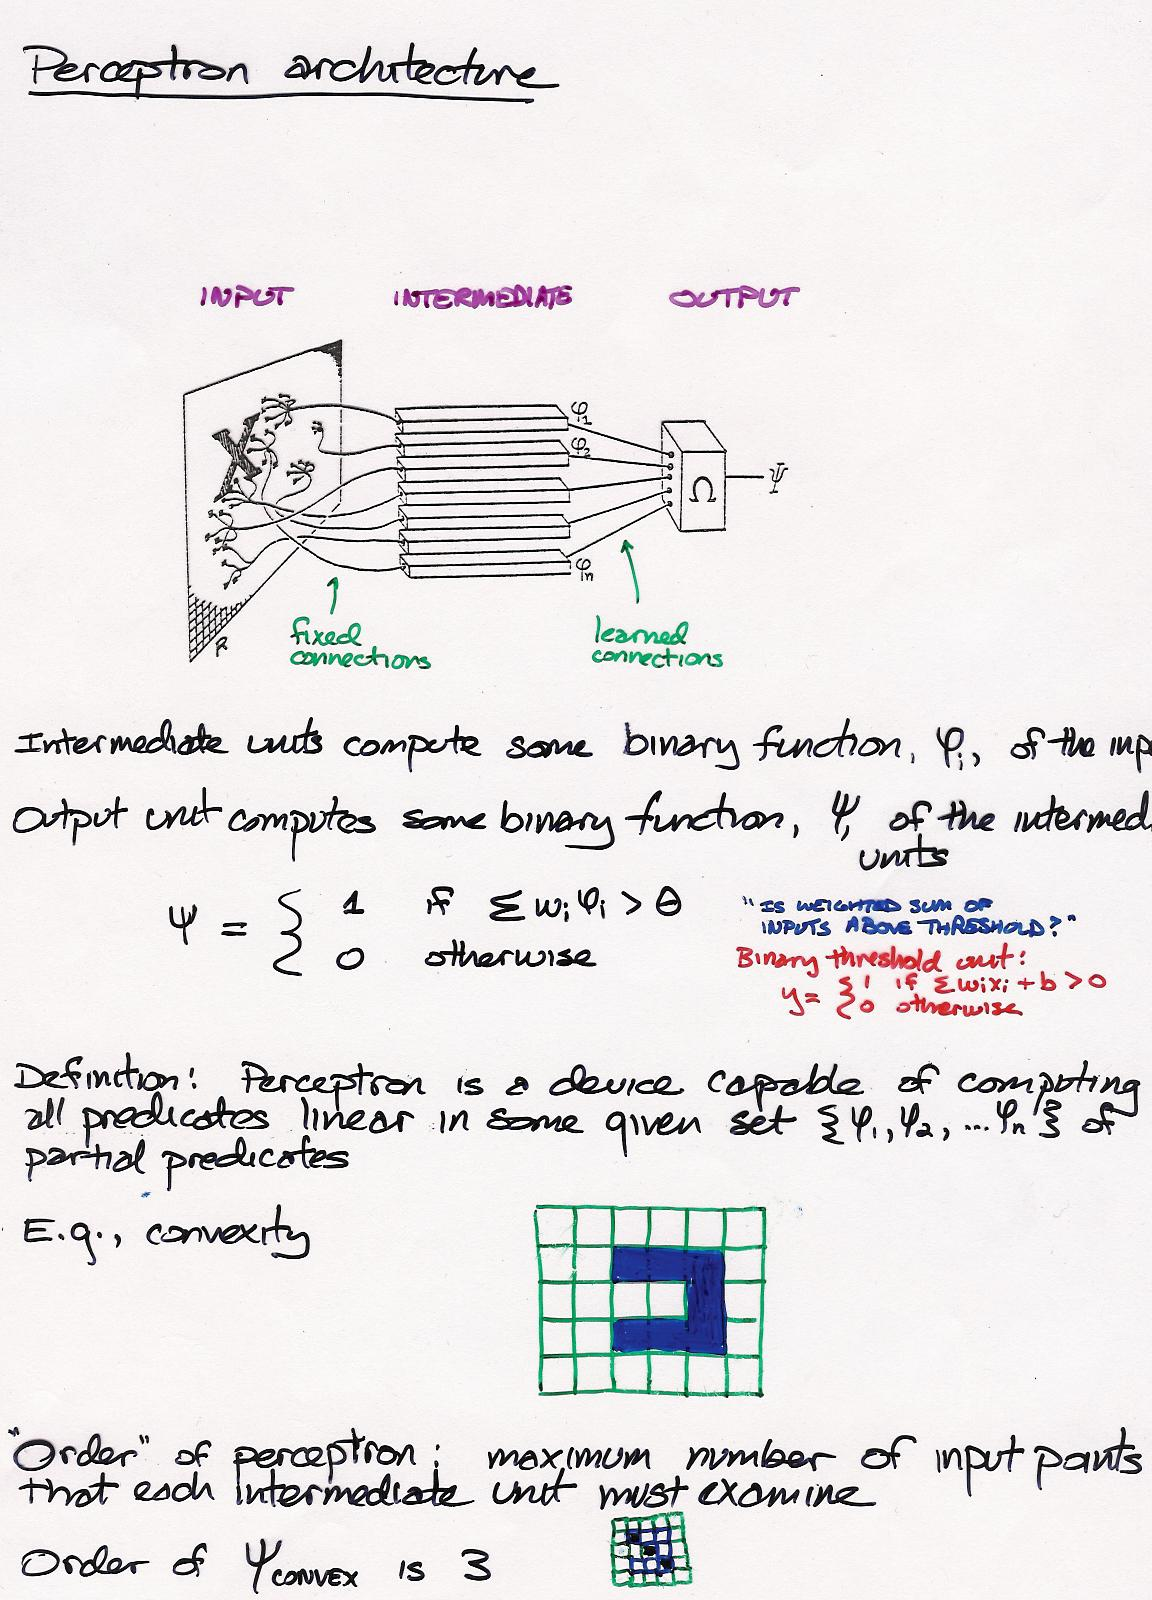 Perceptron architecture
INPUT INTERMEDIATE OUTPUT
φ1
φ2
Ω
Ψ
φn
R
fixed
connections
learned
connections
Intermediate units compute some binary function, φi, of the inp
Output unit computes some binary function, Ψ, of the intermed.
units
Ψ = { 1 if Σ wi φi > θ
0 otherwise
"IS WEIGHTED SUM OF
INPUTS ABOVE THRESHOLD?"
Binary threshold unit:
y = { 1 if Σ wi xi + b > 0
0 otherwise
Definition: Perceptron is a device capable of computing
all predicates linear in some given set {φ1, φ2, ... φn} of
partial predicates
E.g., convexity
"Order" of perceptron: maximum number of input points
that each intermediate unit must examine
Order of ΨCONVEX is 3